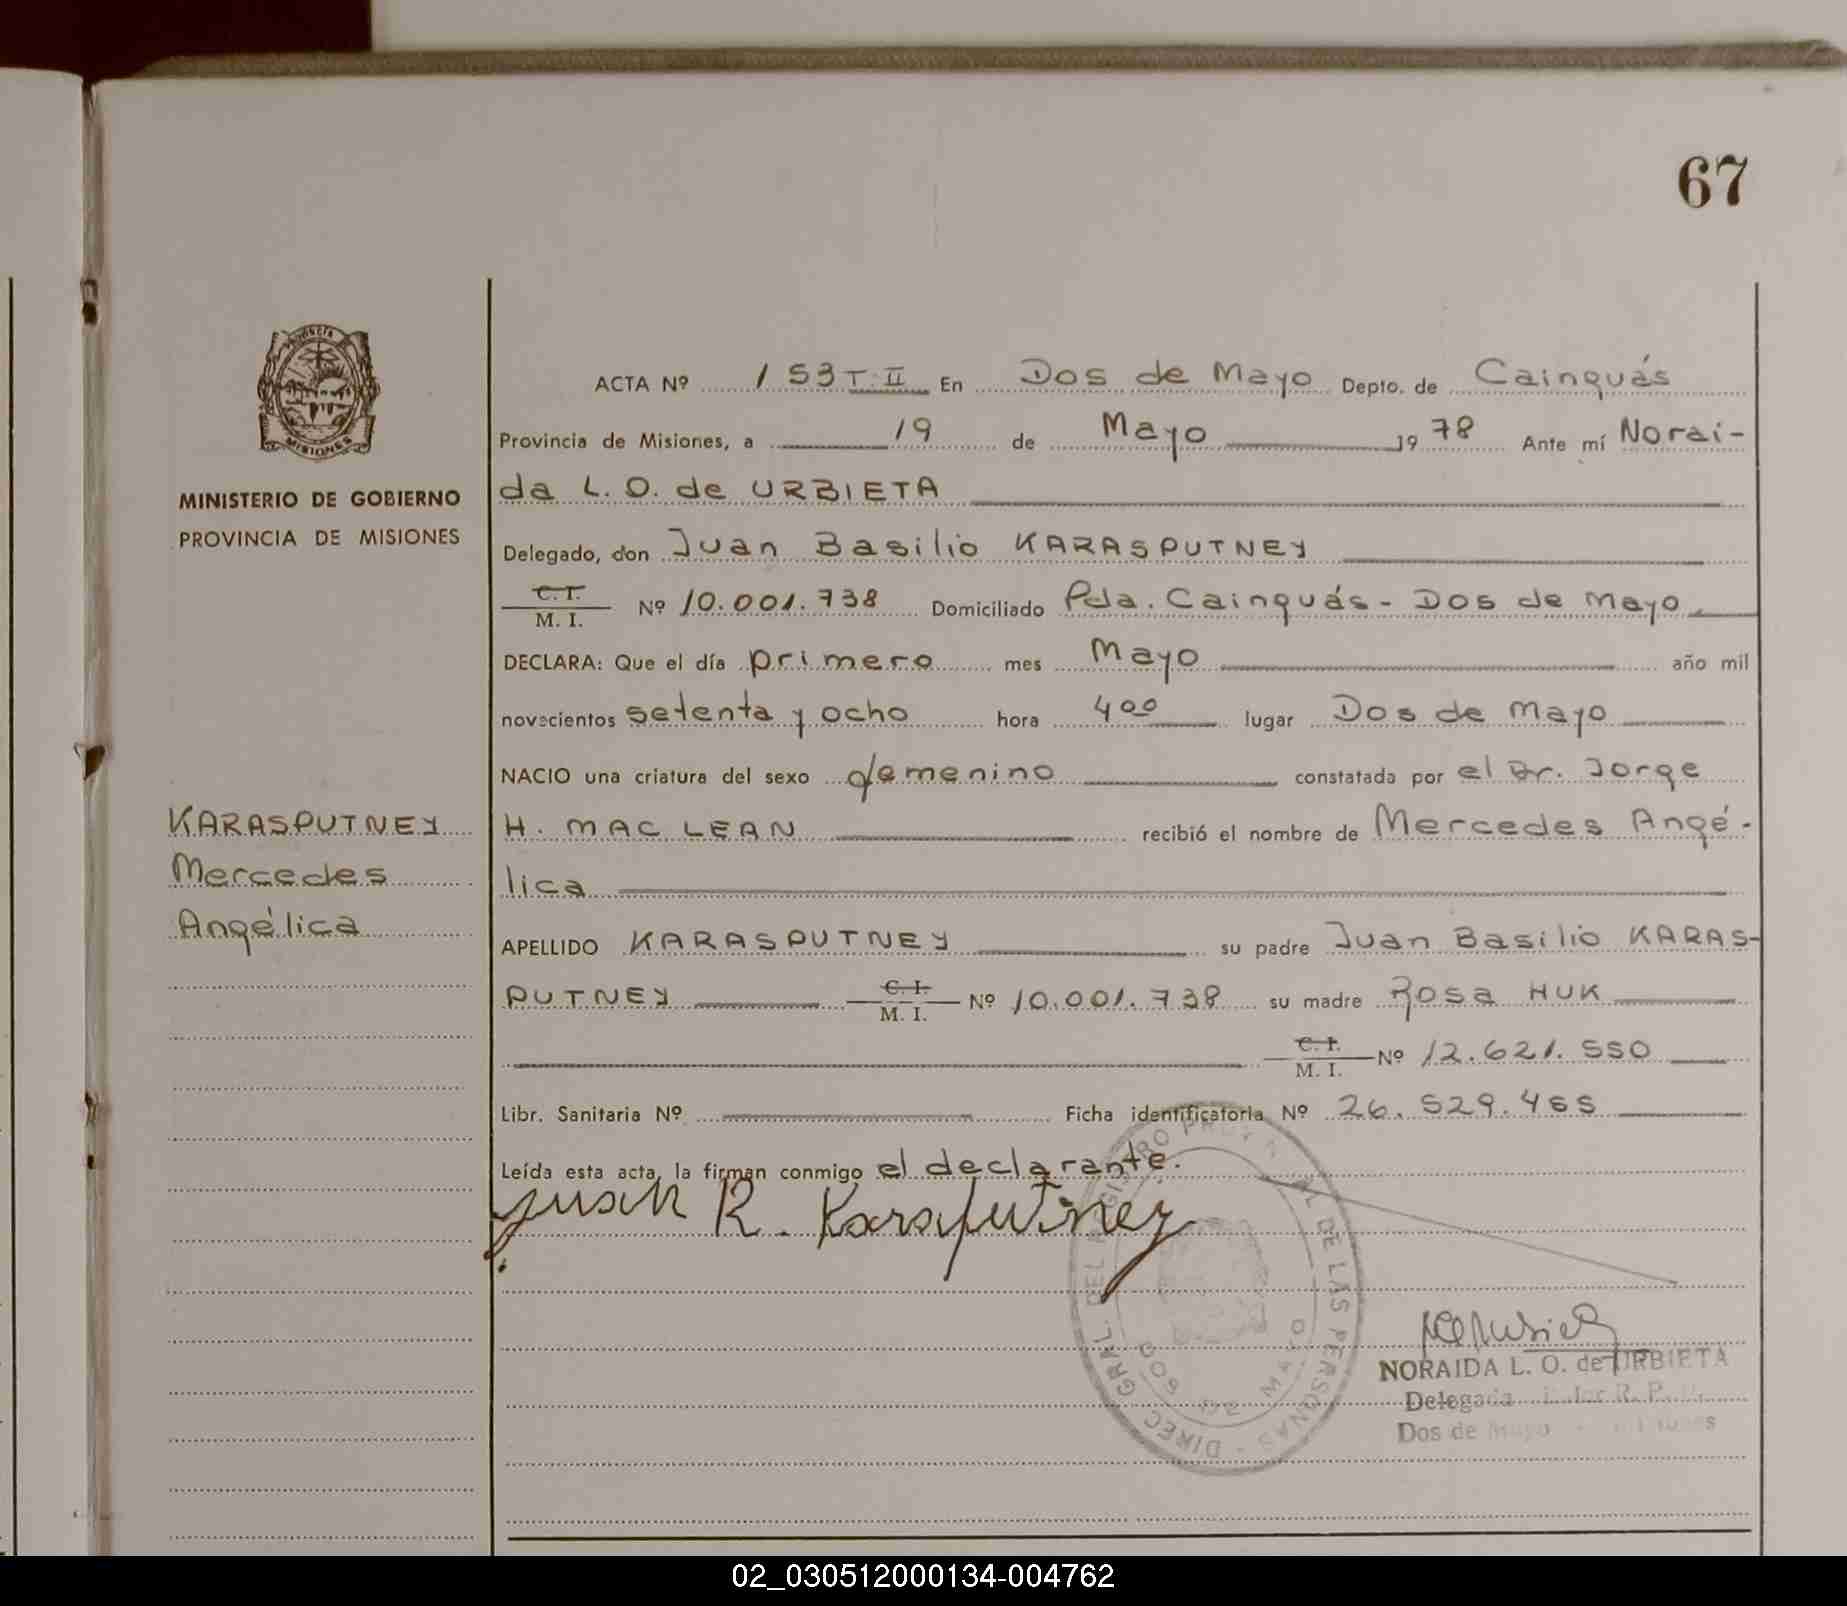 67
PROVINCIA
MISIONES
MINISTERIO DE GOBIERNO
PROVINCIA DE MISIONES
KARASPUTNEY
Mercedes
Angélica
ACTA Nº 153 T. II En Dos de Mayo Depto. de Cainguás
Provincia de Misiones, a 19 de Mayo 19 78 Ante mí Norai-
da L. O. de URBIETA
Delegado, don Juan Basilio KARASPUTNEY
C. I.
M. I. Nº 10.001.738 Domiciliado Pda. Cainguás - Dos de Mayo
DECLARA: Que el día primero mes Mayo año mil
novecientos setenta y ocho hora 4 00 lugar Dos de Mayo
NACIO una criatura del sexo femenino constatada por el Dr. Jorge
H. MAC LEAN recibió el nombre de Mercedes Angé-
lica
APELLIDO KARASPUTNEY su padre Juan Basilio KARAS-
PUTNEY C. I. M. I. Nº 10.001.738 su madre Rosa HUK
C. I. M. I. Nº 12.621.550
Libr. Sanitaria Nº Ficha identificatoria Nº 26.529.455
Leída esta acta, la firman conmigo el declarante.
Juan B. Karasputney
DIREC. GRAL. DEL REGISTRO PROVINCIAL DE LAS PERSONAS -
DOS DE MAYO
NORAIDA L. O. de URBIETA
Delegada R. P.
Dos de Mayo - Misiones
02_030512000134-004762